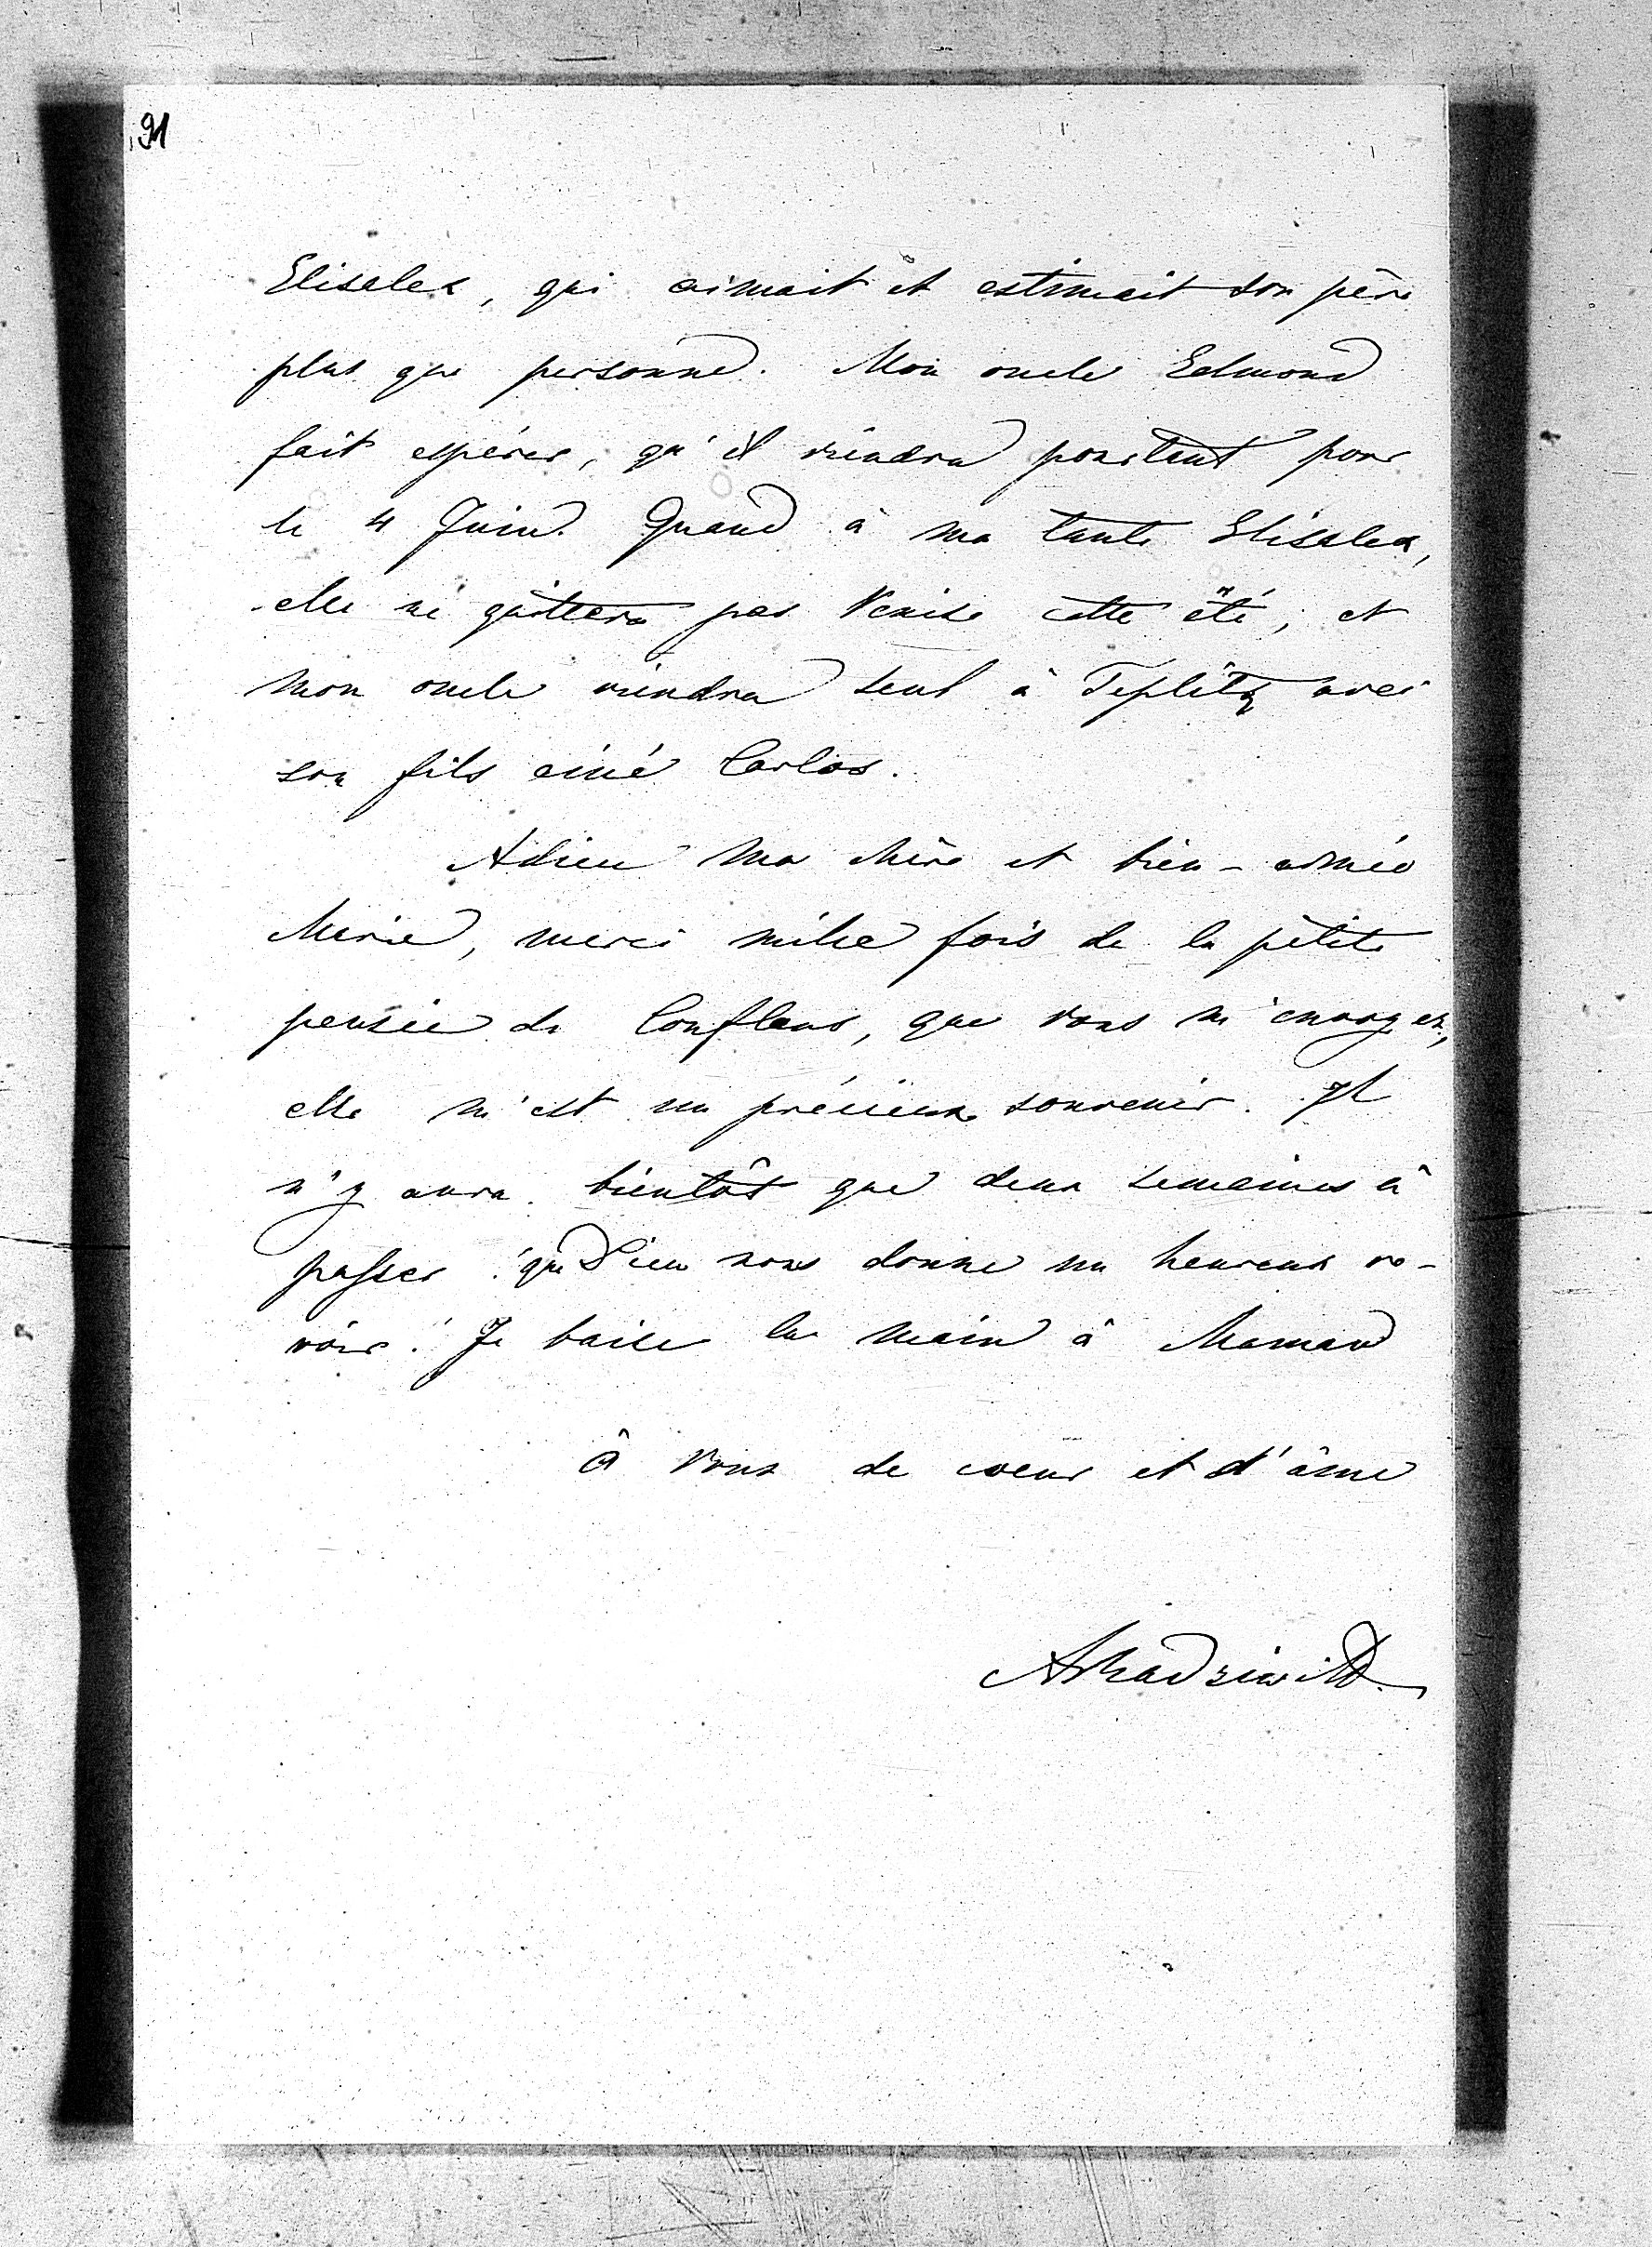 91
Elisalex, qui aimait et estimait son père
plus que personne. Mon oncle Edmond
fait espérer, qu'il viendra pourtant pour
le 4 Juin. Quand à ma tante Elisalex,
elle ne quittera pas Venise cette été, et
mon oncle viendra seul à Teplitz avec
son fils ainé Carlos.
Adieu ma chère et bien-aimée
Marie, merci mille fois de la petite
pensée de Conflans, que vous m'envoyez,
elle m'est un précieux souvenir. Il
n'y aura bientôt que deux semaines à
passer! que Dieu nous donne un heureux re-
voir! Je baise la main à Maman
à vous de coeur et d'âme
ARadziwill